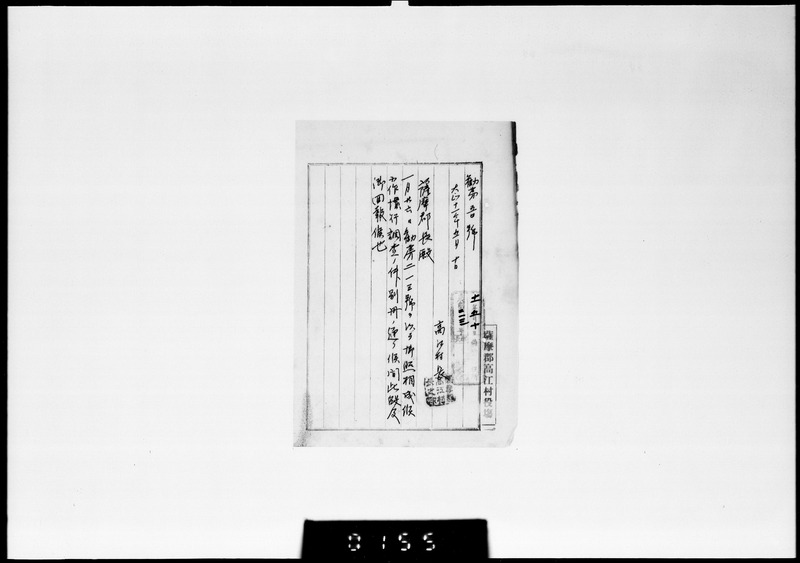 勧第五号
大正十一年五月十日
薩摩郡長殿
高江村長
一月廿六日勧第二一三号ヲ以テ御照相成候
小作慣行調査ノ件別冊ノ通リ候間此段及
御回報候也
十一 五 十
二一三
薩摩郡高江村役場
0155